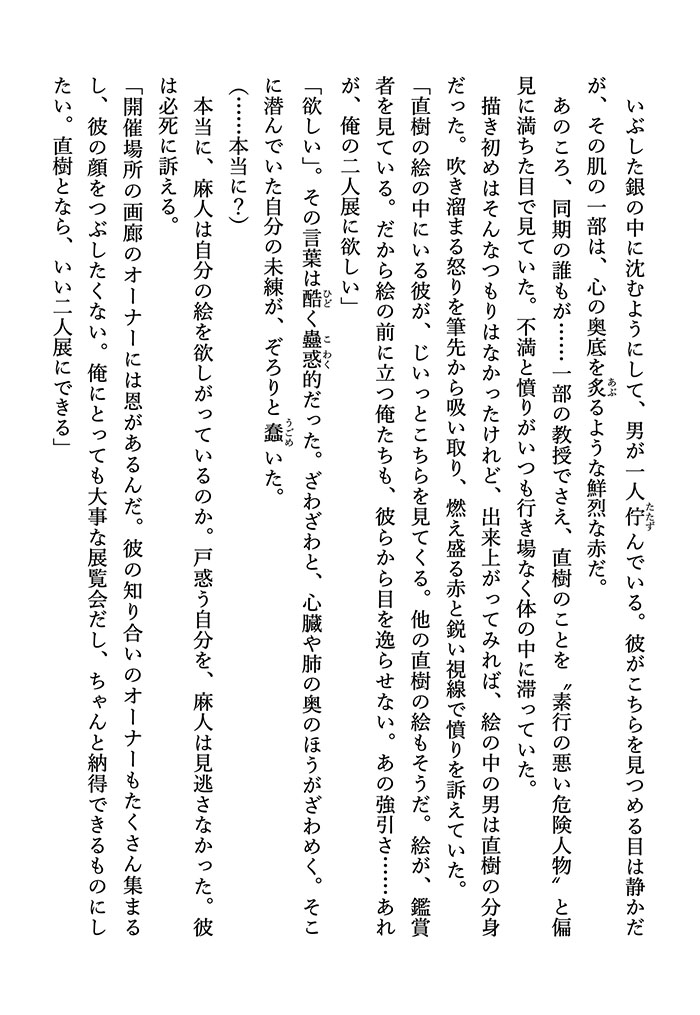 いぶした銀の中に沈むようにして、男が一人佇んでいる。彼がこちらを見つめる目は静かだ
が、その肌の一部は、心の奥底を炙るような鮮烈な赤だ。
あのころ、同期の誰もが……一部の教授でさえ、直樹のことを〝素行の悪い危険人物〟と偏
見に満ちた目で見ていた。不満と憤りがいつも行き場なく体の中に滞っていた。
描き初めはそんなつもりはなかったけれど、出来上がってみれば、絵の中の男は直樹の分身
だった。吹き溜まる怒りを筆先から吸い取り、燃え盛る赤と鋭い視線で憤りを訴えていた。
「直樹の絵の中にいる彼が、じいっとこちらを見てくる。他の直樹の絵もそうだ。絵が、鑑賞
者を見ている。だから絵の前に立つ俺たちも、彼らから目を逸らせない。あの強引さ……あれ
が、俺の二人展に欲しい」
「欲しい」。その言葉は酷く蠱惑的だった。ざわざわと、心臓や肺の奥のほうがざわめく。そこ
に潜んでいた自分の未練が、ぞろりと蠢いた。
(……本当に？)
本当に、麻人は自分の絵を欲しがっているのか。戸惑う自分を、麻人は見逃さなかった。彼
は必死に訴える。
「開催場所の画廊のオーナーには恩があるんだ。彼の知り合いのオーナーもたくさん集まる
し、彼の顔をつぶしたくない。俺にとっても大事な展覧会だし、ちゃんと納得できるものにし
たい。直樹となら、いい二人展にできる」